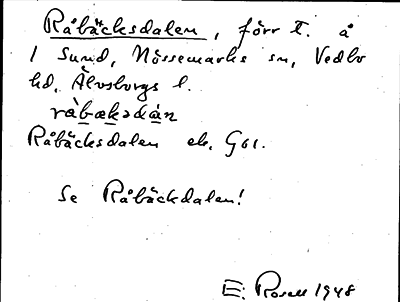 Råbäcksdalen, förr t. å
1 Sund, Nössemarks sn, Vedbo
hd, Älvsborgs l.
råbæksdán
Råbäcksdalen ek. G61.
Se Råbäckdalen!
E. Rosell 1948